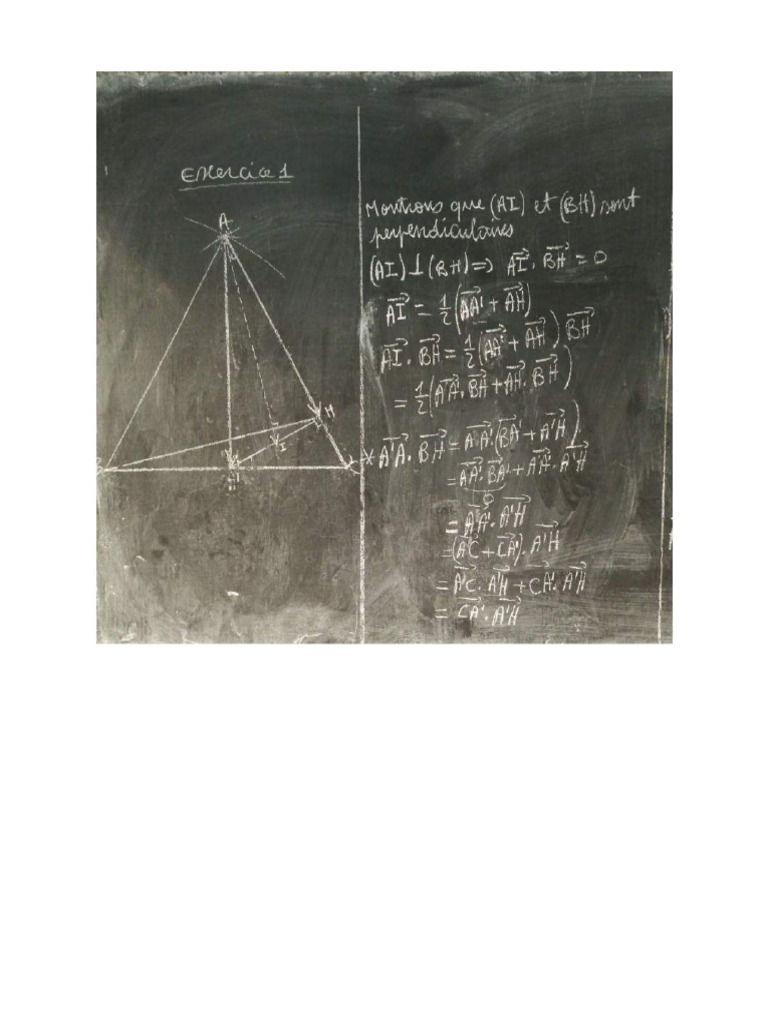 Exercice 1
A
H
I
Montrons que (AI) et (BH) sont
perpendiculaires
(AI) ⊥ (BH) => \overrightarrow{AI} . \overrightarrow{BH} = 0
\overrightarrow{AI} = 1/2 (\overrightarrow{AA'} + \overrightarrow{AH})
\overrightarrow{AI} . \overrightarrow{BH} = 1/2 (\overrightarrow{AA'} + \overrightarrow{AH}) \overrightarrow{BH}
= 1/2 (\overrightarrow{AA'} . \overrightarrow{BH} + \overrightarrow{AH} . \overrightarrow{BH})
* \overrightarrow{A'A} . \overrightarrow{BH} = \overrightarrow{AA'} . (\overrightarrow{BA'} + \overrightarrow{A'H})
= \overrightarrow{AA'} . \overrightarrow{BA'} + \overrightarrow{AA'} . \overrightarrow{A'H}
0
= \overrightarrow{AA'} . \overrightarrow{A'H}
= (\overrightarrow{AC} + \overrightarrow{CA'}) . \overrightarrow{A'H}
= \overrightarrow{A'C} . \overrightarrow{A'H} + \overrightarrow{CA'} . \overrightarrow{A'H}
= \overrightarrow{CA'} . \overrightarrow{A'H}